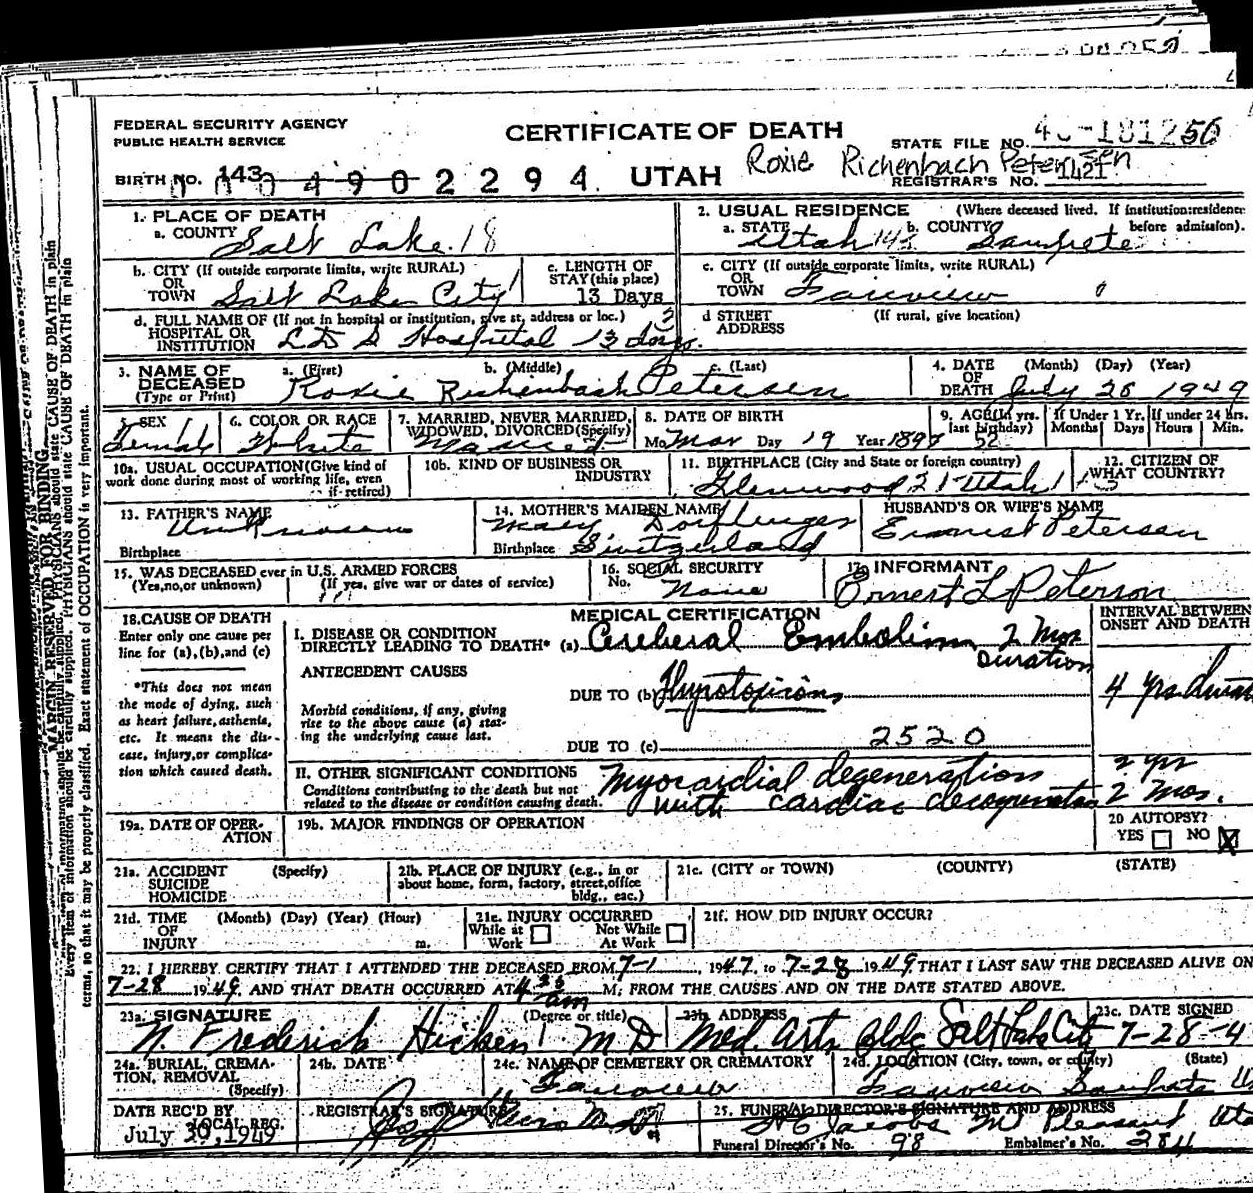 FEDERAL SECURITY AGENCY
PUBLIC HEALTH SERVICE
CERTIFICATE OF DEATH
STATE FILE NO.
BIRTH NO. 143
0 0 0 4 9 0 2 2 9 4
UTAH
Roxie Richenbach Petersen
REGISTRAR'S NO. 1421
1. PLACE OF DEATH
a. COUNTY Salt Lake. 18
2. USUAL RESIDENCE (Where deceased lived. If institution:residence before admission).
a. STATE Utah 143 b. COUNTY Sanpete
b. CITY (If outside corporate limits, write RURAL)
OR
TOWN Salt Lake City
c. LENGTH OF
STAY (this place)
13 Days
c. CITY (If outside corporate limits, write RURAL)
OR
TOWN Fairview
d. FULL NAME OF (If not in hospital or institution, give st. address or loc.)
HOSPITAL OR
INSTITUTION L D S Hospital 13 days.
d STREET (If rural, give location)
ADDRESS
3. NAME OF
DECEASED
(Type or Print)
a. (First) b. (Middle) c. (Last)
Roxie Richenbach Petersen
4. DATE (Month) (Day) (Year)
OF
DEATH July 28 1949
5. SEX
Female
6. COLOR OR RACE
White
7. MARRIED, NEVER MARRIED,
WIDOWED, DIVORCED(Specify)
Married
8. DATE OF BIRTH
Mo. Mar Day 19 Year 1897
9. AGE(In yrs.
last birthday)
52
If Under 1 Yr.
Months Days
If under 24 Hrs.
Hours Min.
10a. USUAL OCCUPATION(Give kind of
work done during most of working life, even
if retired)
10b. KIND OF BUSINESS OR
INDUSTRY
11. BIRTHPLACE (City and State or foreign country)
Glenwood 21 Utah
12. CITIZEN OF
WHAT COUNTRY?
13. FATHER'S NAME
Unknown
Birthplace
14. MOTHER'S MAIDEN NAME
Mary
Birthplace Switzerland
HUSBAND'S OR WIFE'S NAME
Ernest Petersen
15. WAS DECEASED ever in U.S. ARMED FORCES
(Yes,no,or unknown) (If yes, give war or dates of service)
16. SOCIAL SECURITY
No. None
17. INFORMANT
Ernest L Peterson
18. CAUSE OF DEATH
Enter only one cause per
line for (a),(b),and (c)
*This does not mean
the mode of dying, such
as heart failure, asthenia,
etc. It means the dis-
ease, injury,or complica-
tion which caused death.
MEDICAL CERTIFICATION
INTERVAL BETWEEN
ONSET AND DEATH
I. DISEASE OR CONDITION
DIRECTLY LEADING TO DEATH* (a) Cerebral Embolism 2 Mos
Duration
ANTECEDENT CAUSES
DUE TO (b) Thyrotoxicosis
4 yrs
Morbid conditions, if any, giving
rise to the above cause (a) stat-
ing the underlying cause last.
DUE TO (c)
2520
II. OTHER SIGNIFICANT CONDITIONS
Conditions contributing to the death but not
related to the disease or condition causing death.
Myocardial degeneration
with cardiac
2 yr
2 Mos.
19a. DATE OF OPER-
ATION
19b. MAJOR FINDINGS OF OPERATION
20 AUTOPSY?
YES NO X
21a. ACCIDENT (Specify)
SUICIDE
HOMICIDE
21b. PLACE OF INJURY (e.g., in or
about home, form, factory, street,office
bldg., eac.)
21c. (CITY OR TOWN) (COUNTY) (STATE)
21d. TIME (Month) (Day) (Year) (Hour)
OF
INJURY m.
21e. INJURY OCCURRED
While at Not While
Work At Work
21f. HOW DID INJURY OCCUR?
22. I HEREBY CERTIFY THAT I ATTENDED THE DECEASED FROM 7-1, 1947, to 7-28 1949 THAT I LAST SAW THE DECEASED ALIVE ON
7-28 1949, AND THAT DEATH OCCURRED AT am M; FROM THE CAUSES AND ON THE DATE STATED ABOVE.
23a. SIGNATURE (Degree or title)
N. Frederick Hicken MD
23b. ADDRESS
Med. Arts Bldg Salt Lake City
23c. DATE SIGNED
7-28-4
24a. BURIAL, CREMA-
TION, REMOVAL
(Specify)
24b. DATE
24c. NAME OF CEMETERY OR CREMATORY
Fairview
24d. LOCATION (City, town, or county) (State)
Fairview Sanpete U
DATE REC'D BY
LOCAL REG.
July 30, 1949
REGISTRAR'S SIGNATURE
25. FUNERAL DIRECTOR'S SIGNATURE AND ADDRESS
Jacobs Mt Pleasant Uta
Funeral Director's No. 98 Embalmer's No. 384
MARGIN RESERVED FOR BINDING.
terms, so that it may be properly classified. Exact statement of OCCUPATION is very important.